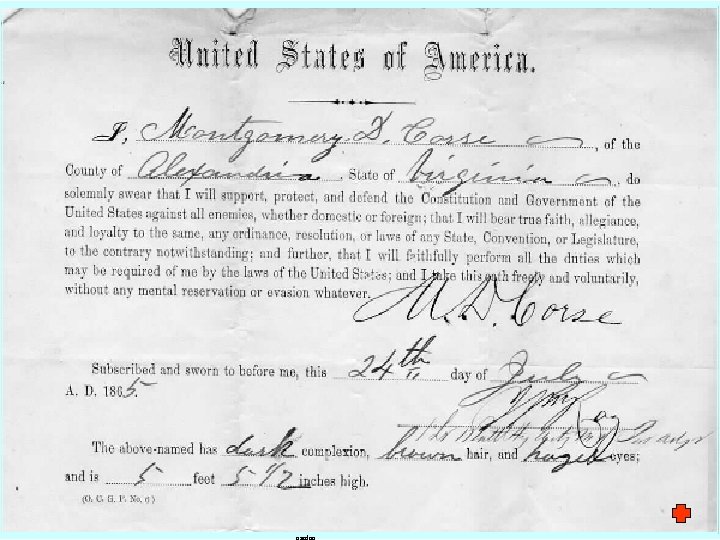 United States of America.
I, Montgomery D. Corse, of the
County of Alexandria, State of Virginia, do
solemnly swear that I will support, protect, and defend the Constitution and Government of the
United States against all enemies, whether domestic or foreign; that I will bear true faith, allegiance,
and loyalty to the same, any ordinance, resolution, or laws of any State, Convention, or Legislature,
to the contrary notwithstanding; and further, that I will faithfully perform all the duties which
may be required of me by the laws of the United States; and I take this oath freely and voluntarily,
without any mental reservation or evasion whatever.
M. D. Corse
Subscribed and sworn to before me, this 24th day of July
A. D. 1865.
The above-named has dark complexion, brown hair, and hazel eyes;
and is 5 feet 5 1/2 inches high.
(O. C. G. P. No. 9)